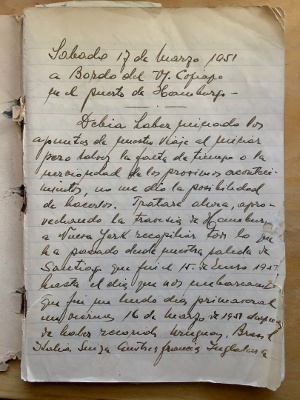 Sabado 17 de marzo 1951
a Bordo del M/ Copiapo
en el puerto de Hamburgo -
Debia haber iniciado los
apuntes de nuestro viaje al iniciar
pero talvez la falta de tiempo o la
de los proximos aconteci-
mientos, no me dio la posibilidad
de hacerlos. Tratare ahora, apro-
vechando la travesia de Hamburgo
a Nueva York recopilar todo lo que
ha pasado desde nuestra salida de
Santiago que fué el 15 de Enero 1951.
hasta el dia que nos embarcamos
que fue un lindo dia primaveral
un viernes 16 de marzo de 1951 despues
de haber recorrido Uruguay, Brasil
Italia Suiza Austria Francia Inglaterra